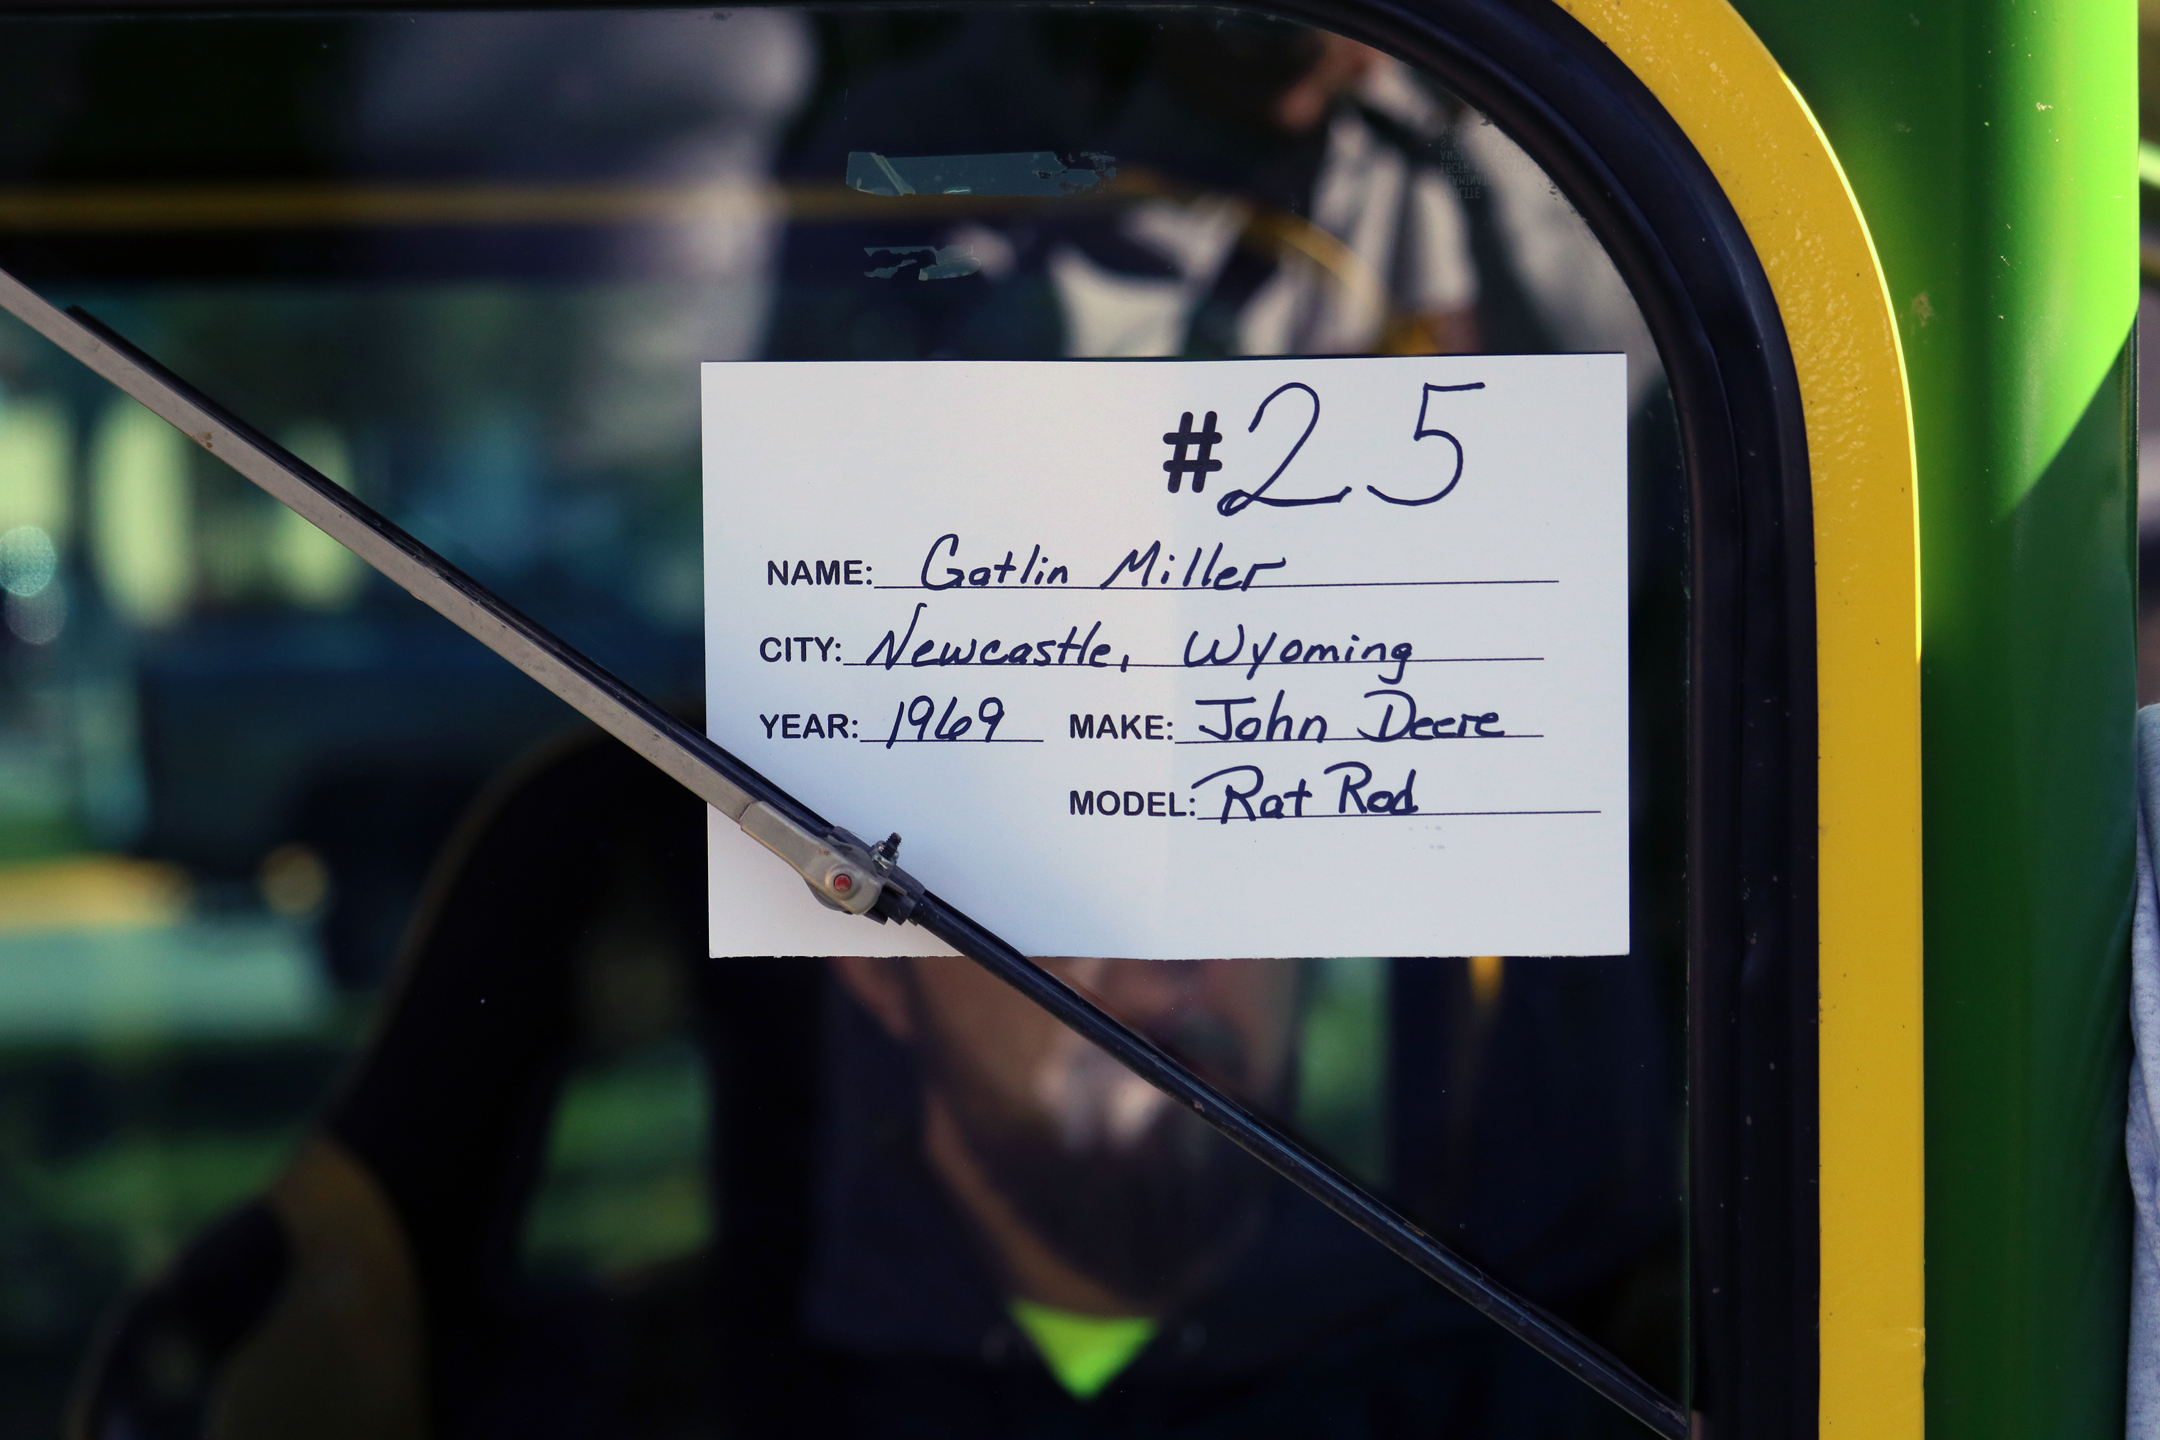 #25
NAME: Gatlin Miller
CITY: Newcastle, Wyoming
YEAR: 1969 MAKE: John Deere
MODEL: Rat Rod